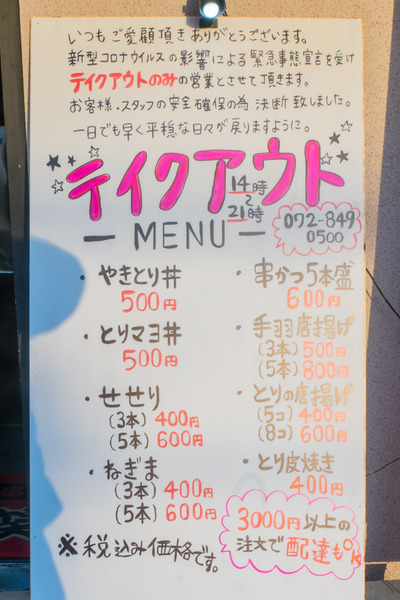 いつもご愛顧頂きありがとうございます。
新型コロナウイルスの影響による緊急事態宣言を受け
テイクアウトのみの営業とさせて頂きます。
お客様・スタッフの安全確保の為 決断致しました。
一日でも早く平穏な日々が戻りますように。
テイクアウト
14時
〜
21時
072-849
0500
ー MENU ー
・やきとり丼
500円
・とりマヨ丼
500円
・せせり
(3本) 400円
(5本) 600円
・ねぎま
(3本) 400円
(5本) 600円
※税込み価格です。
・串かつ5本盛
600円
・手羽唐揚げ
(3本) 500円
(5本) 800円
・とりの唐揚げ
(5コ) 400円
(8コ) 600円
・とり皮焼き
400円
3000円以上の
注文で配達もOK